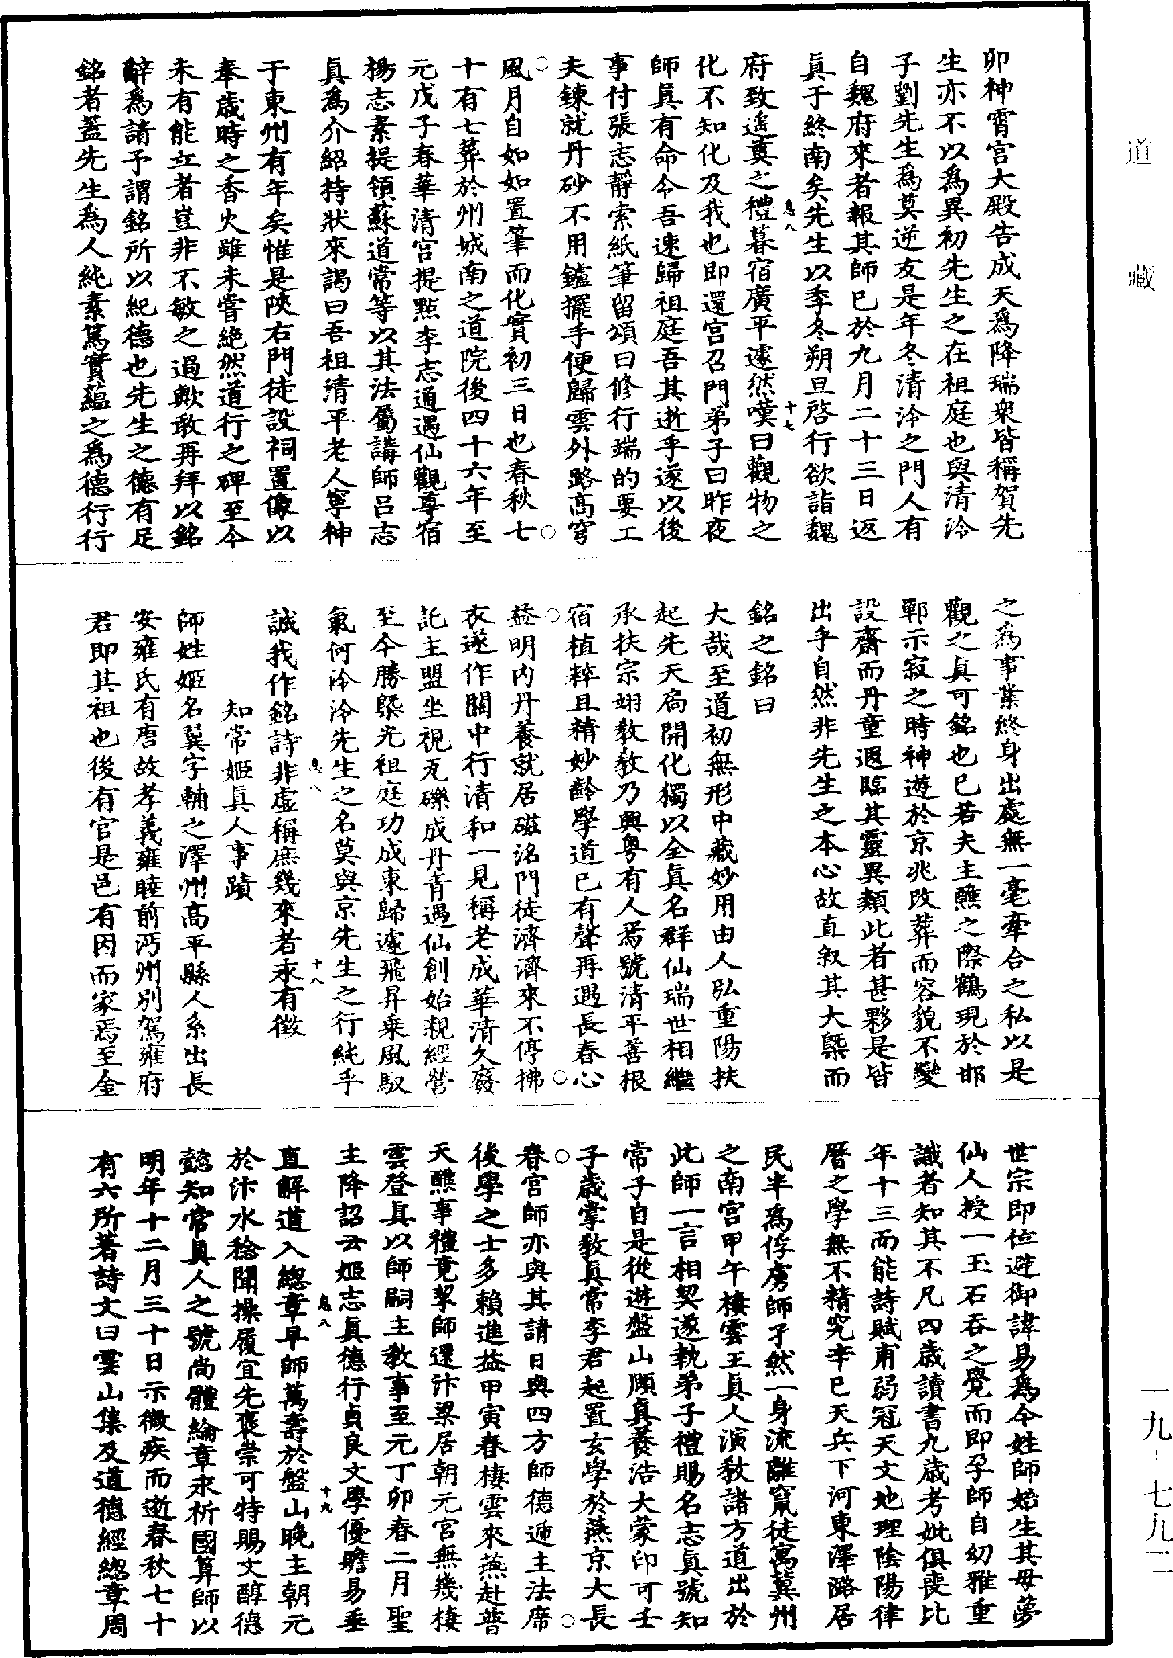 卯神霄宮大殿告成天爲降瑞衆皆稱賀先
生亦不以爲異初先生之在祖庭也與清泠
子劉先生爲莫逆友是年冬清泠之門人有
自魏府來者報其師已於九月二十三日返
眞于終南矣先生以季冬朔旦啓行欲詣魏
府致遥奠之禮暮宿廣平遽然嘆曰觀物之
化不知化及我也即還宮召門弟子曰昨夜
師眞有命令吾速歸祖庭吾其逝乎遂以後
事付張志靜索紙筆留頌曰修行端的要工
夫鍊就丹砂不用鑪擺手便歸雲外路高穹
風月自如如置筆而化實初三日也春秋七
十有七葬於州城南之道院後四十六年至
元戊子春華清宮提點李志通遇仙觀尊宿
楊志素提領蘇道常等以其法屬講師呂志
眞爲介紹持狀來謁曰吾祖清平老人寧神
于東州有年矣惟是陝右門徒設祠置像以
奉歲時之香火雖未嘗絶然道行之碑至今
未有能立者豈非不敏之過歟敢再拜以銘
辭爲請予謂銘所以紀德也先生之德有足
銘者蓋先生爲人純素篤實蘊之爲德行行
之爲事業終身出處無一毫牽合之私以是
觀之眞可銘也已若夫主醮之際鶴現於邯
鄲示寂之時神遊於京兆改葬而容貌不變
設齋而丹童遐臨其靈異類此者甚夥是皆
出乎自然非先生之本心故直叙其大槩而
銘之銘曰
大哉至道初無形中藏妙用由人弘重陽扶
起先天扃開化獨以全眞名群仙瑞世相繼
承扶宗翊敎敎乃興粤有人焉號清平善根
宿植粹且精妙齡學道已有聲再遇長春心
益明内丹養就居磁洺門徒濟濟來不停拂
衣遂作關中行清和一見稱老成華清久廢
託主盟坐視瓦礫成丹青遇仙創始親經營
至今勝槩光祖庭功成東歸遽飛昇乘風馭
氣何泠泠先生之名莫與京先生之行純乎
誠我作銘詩非虚稱庶幾來者永有徵
知常姬眞人事蹟
師姓姬名翼字輔之澤州高平縣人系出長
安雍氏有唐故孝義雍睦前沔州別駕雍府
君即其祖也後有官是邑有因而家焉至金
世宗即位避御諱易爲今姓師始生其母夢
仙人授一玉石吞之覺而即孕師自幼雅重
識者知其不凡四歲讀書九歲考妣俱喪比
年十三而能詩賦甫弱冠天文地理陰陽律
曆之學無不精究辛巳天兵下河東澤潞居
民半爲俘虜師孑然一身流離竄徒寓冀州
之南宮甲午棲雲王眞人演敎諸方道出於
此師一言相契遂執弟子禮賜名志眞號知
常子自是從遊盤山頤眞養浩大蒙印可壬
子歲掌敎眞常李君起置玄學於燕京大長
春宮師亦與其請日與四方師德遞主法席
後學之士多賴進益甲寅春棲雲來燕赴普
天醮事禮竟挈師還汴梁居朝元宮無幾棲
雲登眞以師嗣主敎事至元丁卯春二月聖
主降詔云姬志眞德行貞良文學優贍易垂
直解道入總章早師萬壽於盤山晚主朝元
於汴水稔聞操履宜先褒崇可特賜文醇德
懿知常眞人之號尚體綸章永祈國算師以
明年十二月三十日示微疾而逝春秋七十
有六所著詩文曰雲山集及道德經總章周
息八
十七
息八
十八
息八
十九
道藏
一九-七九二